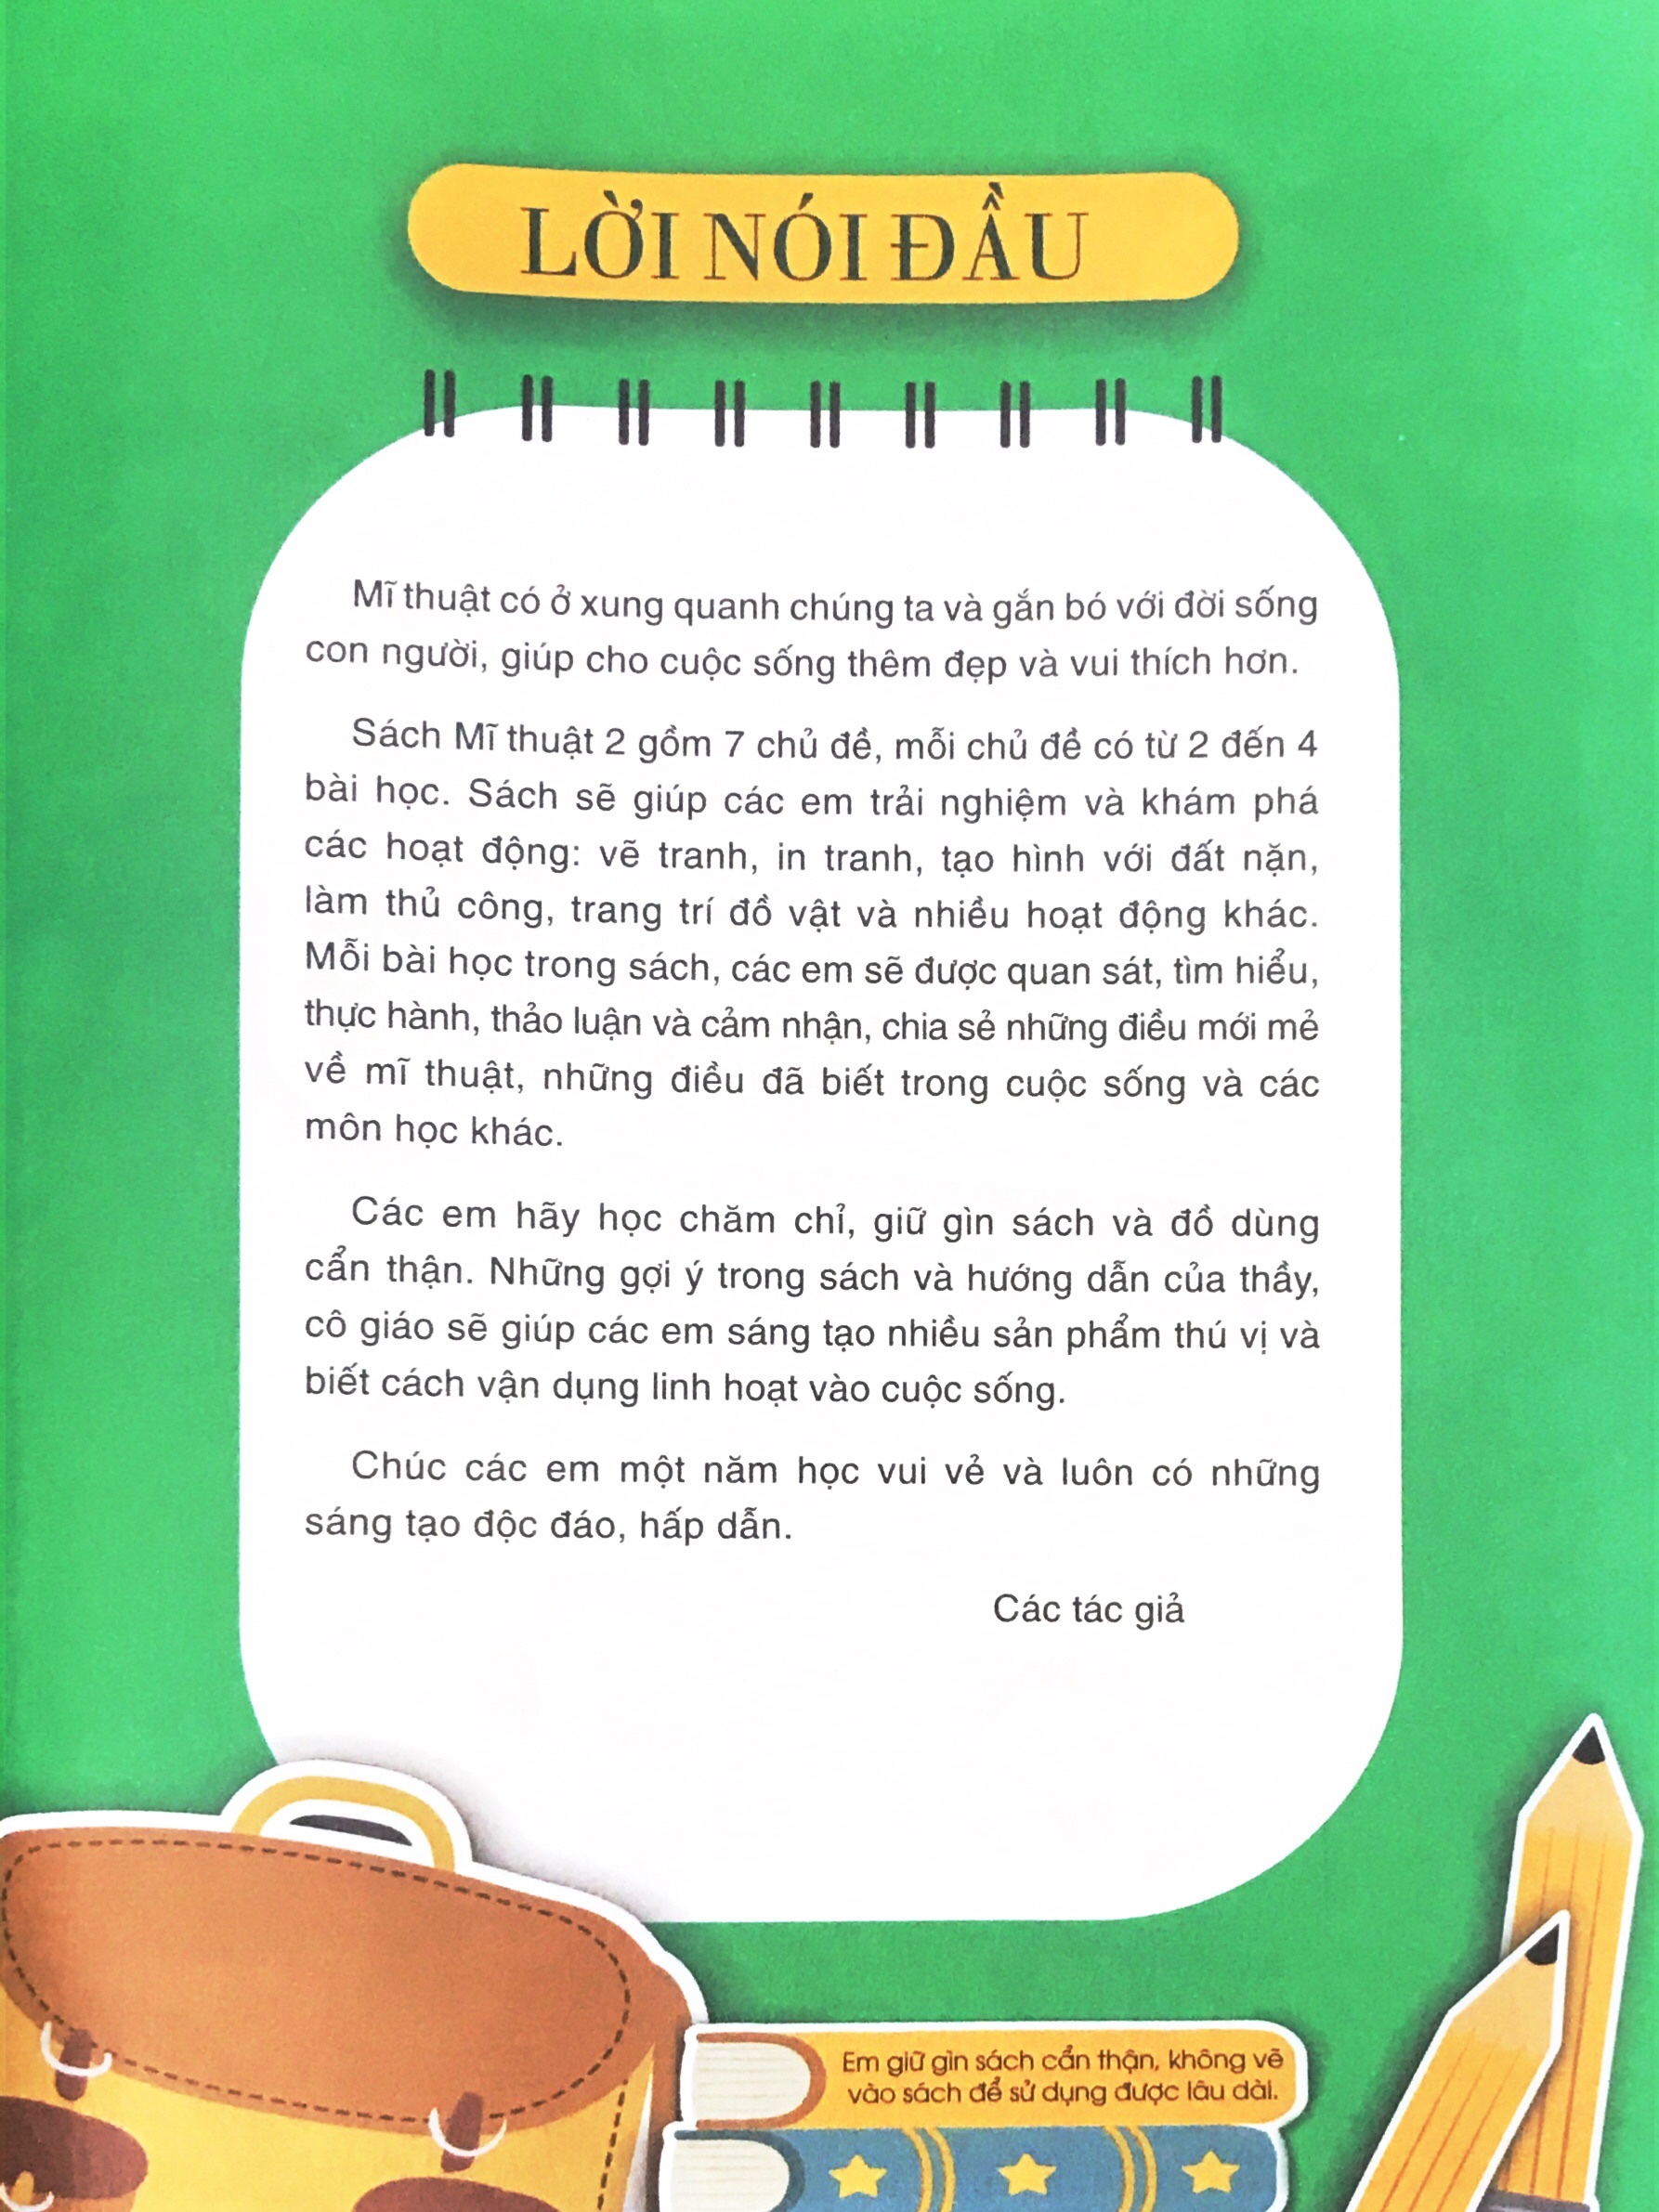 LỜI NÓI ĐẦU
Mĩ thuật có ở xung quanh chúng ta và gắn bó với đời sống
con người, giúp cho cuộc sống thêm đẹp và vui thích hơn.
Sách Mĩ thuật 2 gồm 7 chủ đề, mỗi chủ đề có từ 2 đến 4
bài học. Sách sẽ giúp các em trải nghiệm và khám phá
các hoạt động: vẽ tranh, in tranh, tạo hình với đất nặn,
làm thủ công, trang trí đồ vật và nhiều hoạt động khác.
Mỗi bài học trong sách, các em sẽ được quan sát, tìm hiểu,
thực hành, thảo luận và cảm nhận, chia sẻ những điều mới mẻ
về mĩ thuật, những điều đã biết trong cuộc sống và các
môn học khác.
Các em hãy học chăm chỉ, giữ gìn sách và đồ dùng
cẩn thận. Những gợi ý trong sách và hướng dẫn của thầy,
cô giáo sẽ giúp các em sáng tạo nhiều sản phẩm thú vị và
biết cách vận dụng linh hoạt vào cuộc sống.
Chúc các em một năm học vui vẻ và luôn có những
sáng tạo độc đáo, hấp dẫn.
Các tác giả
Em giữ gìn sách cẩn thận, không vẽ
vào sách để sử dụng được lâu dài.